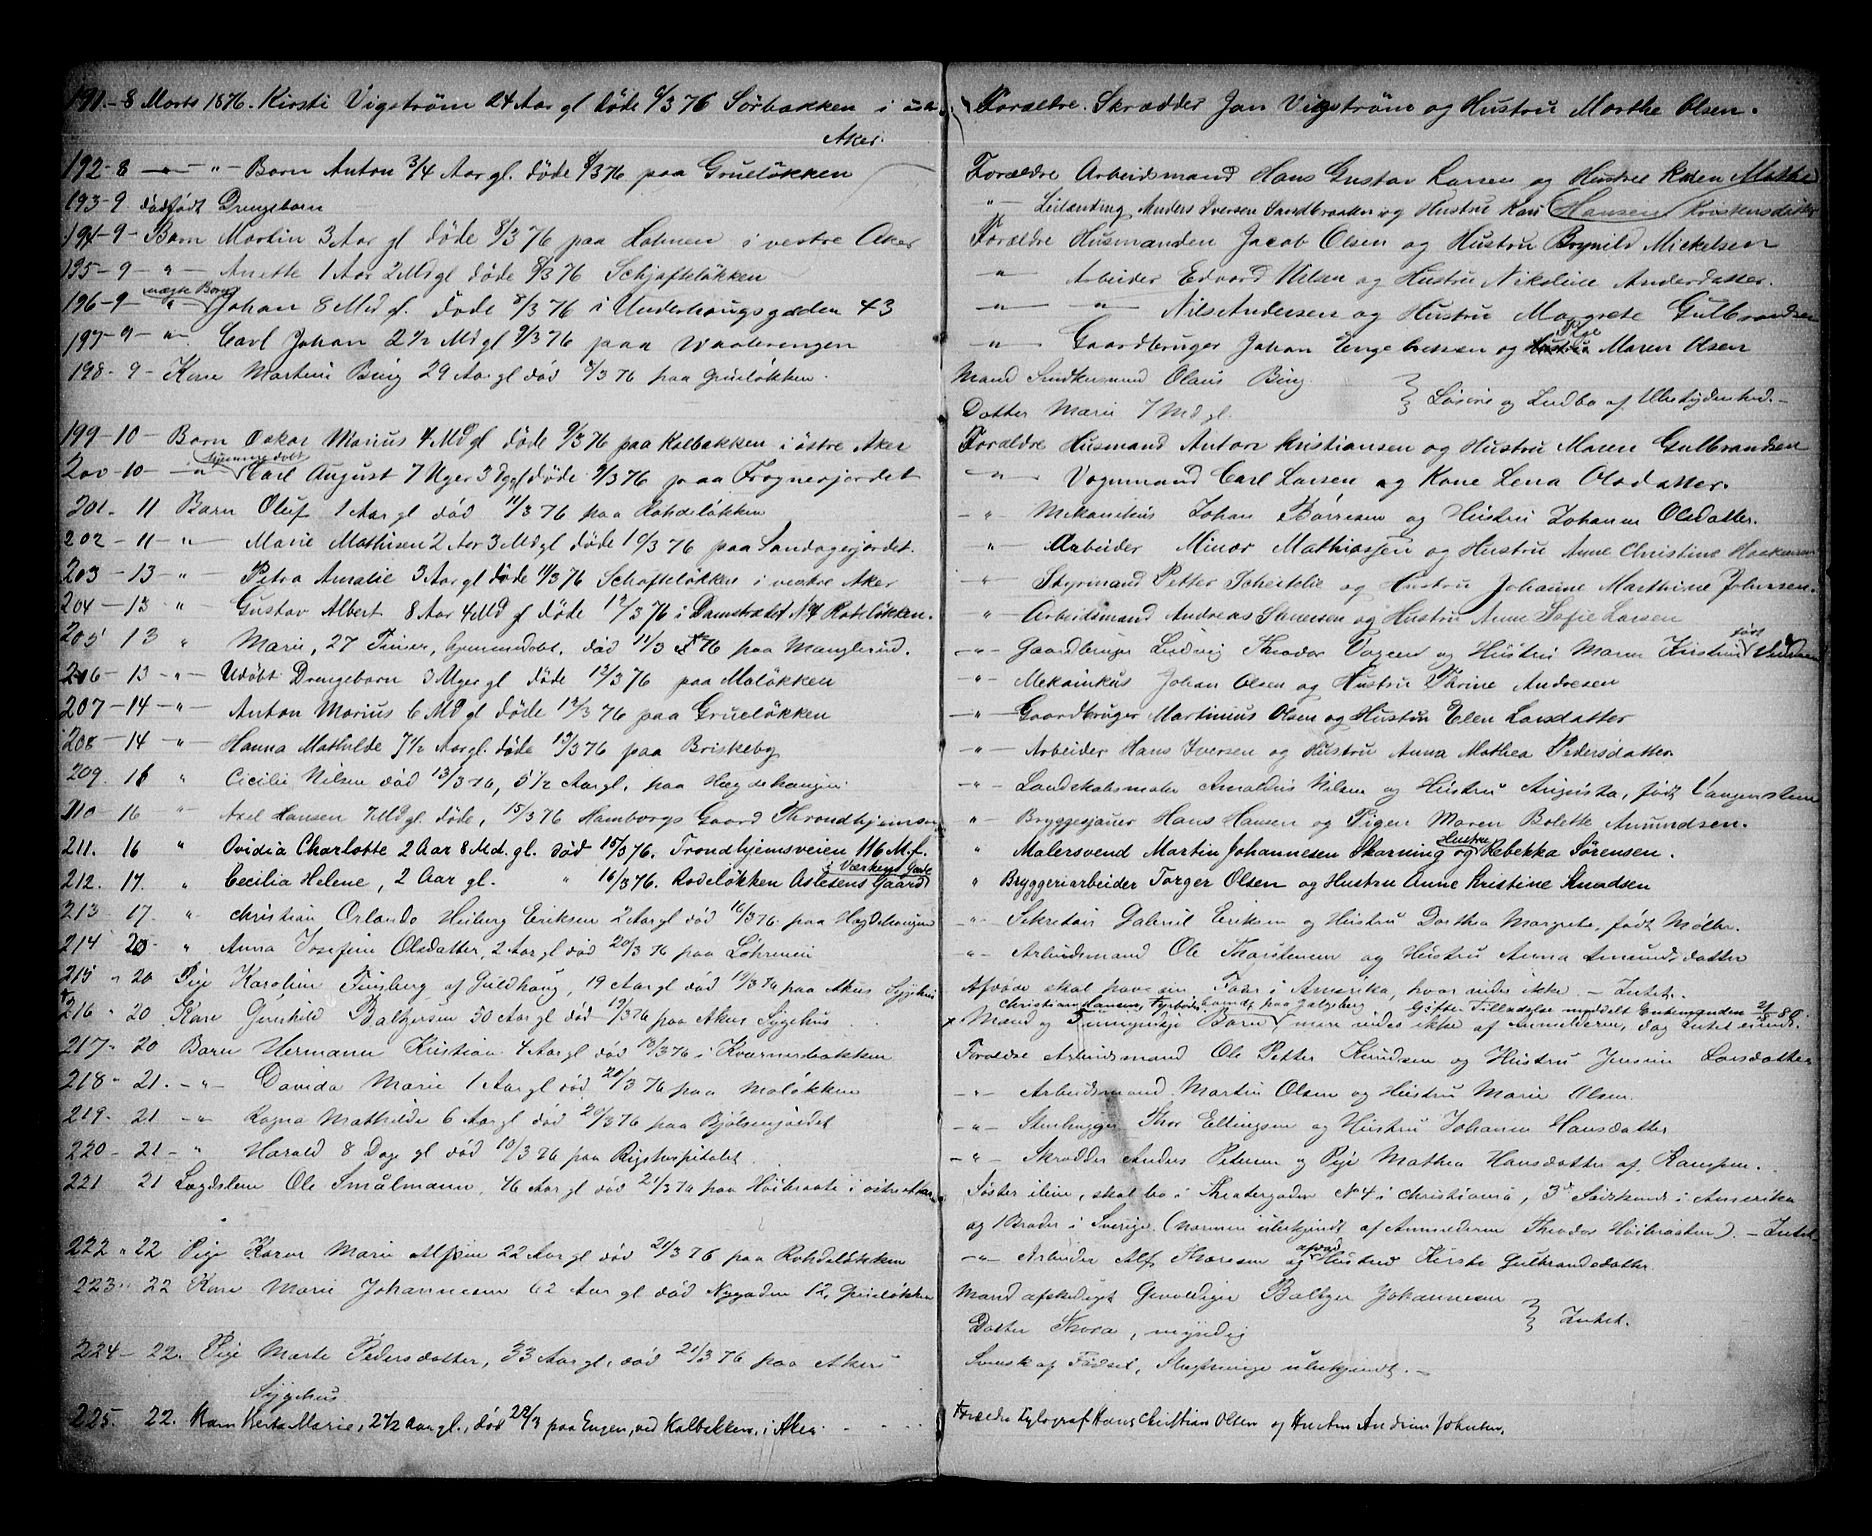 191.-8 Marts 1876. Kirsti Vigstrøm 24 Aar gl døde 6/3 76 Sørbakken i østre
Aker.
Forældre. Skrædder Jan Vigstrøm og Hustru Marthe Olsen.
192-8 -"- -"- Barn Anton 3/4 Aar gl. døde 8/3 76 paa Grueløkken
Forældre Arbeidsmand Hans Gustav Larsen og Hustru Karen Mathea
193-9. dødfødt Drengebarn
-"- Leilænding Anders Iversen Sandbraaten og Hustru Kari Hansen Kristensdatter
194-9- Barn Martin 3 Aar gl døde 8/3 76 paa Holmen i vestre Aker
Forældre Husmanden Jacob Olsen og Hustru Brynild Mickelsen
195-9-"- Anette 1 Aar 2 Md gl døde 8/3 76 Schjafteløkken
-"- Arbeider Edvard Nilsen og Hustru Nikoline Andersdatter.
uægte Barn
196-9- " Johan 8 Md gl. døde 8/3 76 i Underhaugsgaden 43
-"- -"- Nils Andersen og Hustru Margrete Gulbrandsen
197-9-"- Carl Johan 2 1/2 Md gl 9/3 76 paa Vaalerengen
-"- Gaardbruger Johan Engebretsen og Hustru Pige Maren Olsen
198-9- Kone Martine Bing 29 Aar gl død 7/3 76 paa Grueløkken.
Mand Snedkersvend Olaus Bing
Datter Marie 7 Md gl. } Løsøre og Indbo af Ubetydenhed.-
199-10- Barn Oskar Marius 4 Md gl døde 9/3 76 paa Kalbakken i østre Aker
Forældre Husmand Anton Kristiansen og Hustru Maren Gulbrandsen
hjemmedøbt
200-10- -"- Carl August 7 Uger 3 Dage døde 9/3 76 paa Frognerjordet
-"- Vognmand Carl Larsen og Kone Lena Olsdatter.
201-11 Barn Oluf 1 Aar gl død 11/3 76 paa Rohdeløkken
-"- Mekanikus Johan Børresen og Hustru Johanne Olsdatter.
202-11-"- Marie Mathisen 2 Aar 3 Md gl døde 10/3 76 paa Sandagerjordet.
-"- Arbeider Minor Mathiassen og Hustru Anne Christine Haakensen
203-13-"- Petra Amalie 3 Aar gl døde 11/3 76 Schafteløkken i vestre Aker
-"- Styrmand Petter Scheitelie og Hustru Johanne Marthine Johnsen.
204-13 " Gustav Albert 8 Aar 4 Md gl døde 12/3 76 i Damstrædet N4 Rodeløkken.
-"- Arbeidsmand Andreas Simensen og Hustru Anne Sofie Larsen
205 13 " Marie, 27 Timer, hjemmedøbt, død 11/3 76 paa Manglerud.
-"- Gaardbruger Ludvig Theodor Vogen og Hustru Maren Kirstine født
206-13-"- Udøbt Drengebarn 3 Uger gl døde 12/3 76 paa Maløkken
-"- Mekanikus Johan Olsen og Hustru Thrine Andresen
207-14-"- Anton Marius 6 Md gl døde 12/3 76 paa Grueløkken
-"- Gaardbruger Martinius Olsen og Hustru Elen Larsdatter
208-14-"- Hanna Mathilde 7 1/2 Aar gl. døde 12/3 76 paa Briskeby
-"- Arbeider Hans Iversen og Hustru Anna Mathea Pedersdatter
209. 16 " Cicilie Nilsen død 13/3 76, 5 1/2 Aar gl, paa Hægdehaugen
-"- Landskabsmaler Amaldus Nilsen og Hustru Augusta, født Vangensten
210-16 " Axel Hansen 7 Md gl døde, 15/3 76 Hamborgs Gaard Throndhjemsv
" Bryggesjauer Hans Hansen og Pigen Maren Bolette Amundsen.
211. 16 " Ovidia Charlotte 2 Aar 8 Md. gl. død 15/3 76. Trondhjemsveien 116 M.f.
" Malersvend Martin Johannesen Skarning og Hustru Rebekka Sørensen.
212. 17. " Cecilia Helene, 2 Aar gl. " 16/3 76. Rodeløkken Aslesens Gaard
" Bryggeriarbeider Torger Olsen og Hustru Anne Kristine Knudsen
213 17. " Christian Orlando Heiberg Eriksen 2 Aar gl død 16/3 76 paa Hægdehaugen
-"- Sekretær Gabriel Eriksen og Hustru Dorthea Margrete, født Møller.
214 20 " Anna Josefine Olsdatter, 2 Aar gl død 20/3 76 paa
-"- Arbeidsmand Ole Thorstensen og Hustru Anna Amundsdatter
215 " 20 Pige Karoline Finsberg af Guldhaug, 19 Aar gl død 17/3 76 paa Akers Sygehus
Afdøde skal have sin Fader i Amerika, hvor vides ikke. - Intet.
216 " 20 Kone Gunhild Baltzersen 50 Aar gl død 19/3 76 paa Akers Sygehus
Christian Hansen, Fyrbøder paa Galgeberg Giftes Tilladelse meddelt Enkemanden 21/8 80
x Mand og Børn mere vides ikke af Anmelderen, dog Intet
217 " 20 Barn Hermann Kristian 4 Aar gl død 18/3 76 i Kværnerbakken
Forældre Arbeidsmand Ole Petter Knudsen og Hustru Jensine Larsdatter
218 " 21. -"- Davida Marie 1 Aar gl død 20/3 76 paa Maløkken
-"- Arbeidsmand Martin Olsen og Hustru Marie Olsen.
219- 21 -"- Ragna Mathilde 6 Aar gl død 20/3 76 paa Bjølsenjordet
-"- Stenhugger Thor Ellingsen og Hustru Johanne Hansdatter
220- 21- " Harald 8 Dage gl død 10/3 76 paa Rigshospitalet
-"- Skrædder Anders Petersen og Pige Mathea Hansdatter af
221 21 Lægdslem Ole Smålmann, 46 Aar gl død 21/3 76 paa Høibraate i østre Aker
Søster iline, skal bo i Theatergaden No 4 i Christiania, 3de Sødskende i Amerika
og 1 Broder i Sverige (Navnene ubekjendt af Anmelderen Theodor Høibraaten). - Intet
222 " 22 Pige Karen Marie Alfsen 22 Aar gl død 21/3 76 paa Rohdeløkken
-"- Arbeider Alf Thoresen og afdød Hustru Kirste Gulbrandsdatter
223 " 22 Kone Marie Johannesen 62 Aar gl død Nygaden 12, Grueløkken
Mand afskediget Gevaldiger Baltzer Johannesen
Datter Thora, myndig } Intet.
224- 22. Pige Marte Pedersdatter, 33 Aar gl, død 21/3 76 paa Akers
Sygehus
Svensk af Fødsel, Slægtninge ubekjendt. -
225. 22. Barn Berta Marie, 2 1/2 Aar gl., død 20/3 paa Engen, ved Kalbakken, i Aker.
Forældre Xylograf Hans Christian Olsen og Hustru Andrine Johnsen.